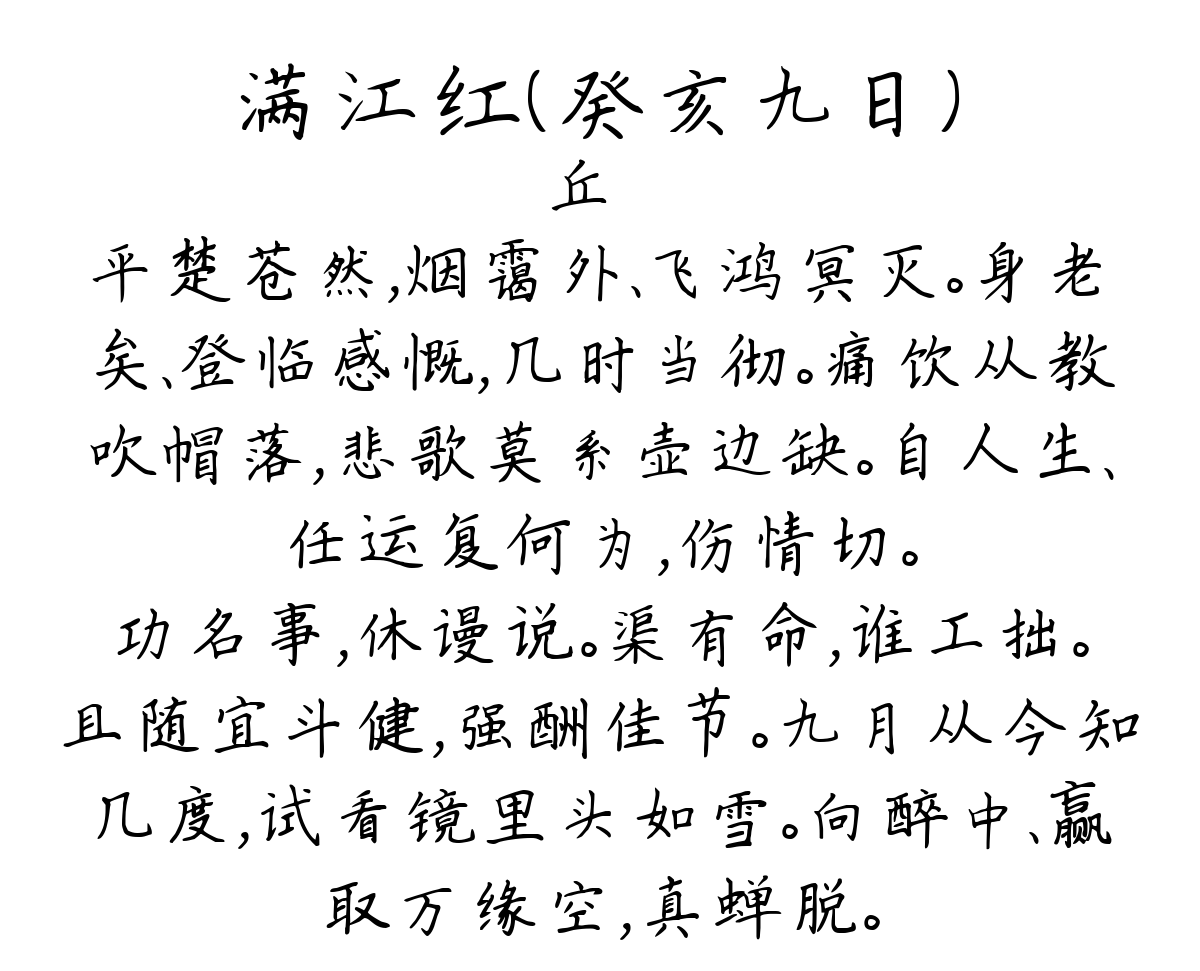 满江红(癸亥九日)
丘
平楚苍然,烟霭外、飞鸿冥灭。身老
矣、登临感慨,几时当彻。痛饮从教
吹帽落,悲歌莫系壶边缺。自人生、
任运复何为,伤情切。
功名事,休谩说。渠有命,谁工拙。
且随宜斗健,强酬佳节。九月从今知
几度,试看镜里头如雪。向醉中、赢
取万缘空,真蝉脱。